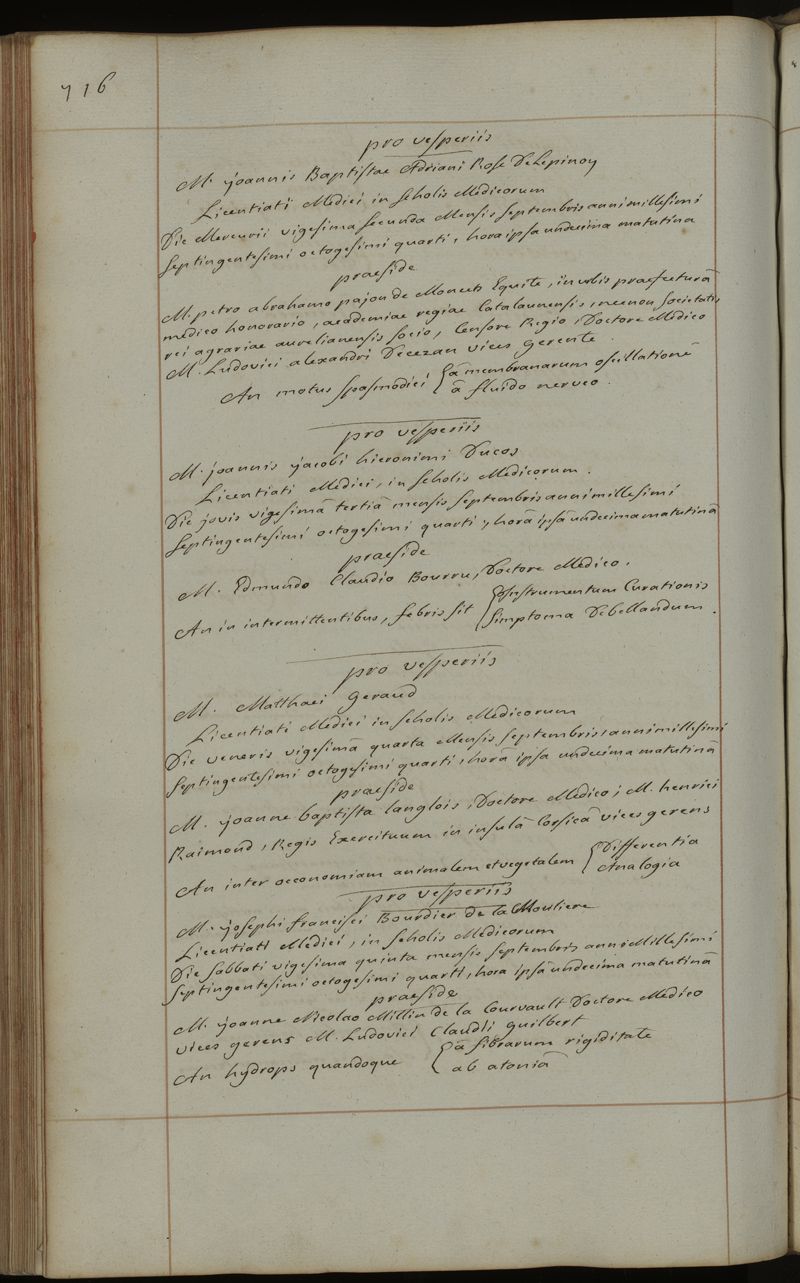 716
pro vesperiis
M. joannis Baptistae Adriani Rose Delepinoy
Licentiati Medici in scholis Medicorum
Die Mercurii vigesima secunda Mensis septembris anni millesimi
septingentesimi octogesimi quarti, hora ipsa undecima matutina
praeside
M. petro abrahamo pajon de Moncets Equite, in urbis praefectura
medico honorario, academiae regiae Catalaunensis, necnon societatis
rei agrariae aurelianensis socio, Censore Regio, Doctore Medico
M. Ludovici alexandri Decezan vices gerente.
An motus spasmodici { a membranarum oscillatione
a fluido nerveo.
pro vesperiis
M. joannis jacobi hieronimi Ducos
Licentiati Medici, in scholis Medicorum.
Die jovis vigesimâ tertiâ mensis septembris anni millesimi
septingentesimi octogesimi quarti, horâ ipsâ undecima matutinâ
praeside
M. Edmundo Claudio Bourru, Doctore Medico.
An in intermittentibus, febris sit { Instrumentum Curationis
simptoma Debellandum.
pro vesperiis
M. Matthaei Geraud
Licentiati Medici in scholis Medicorum
Die veneris vigesimâ quarta Mensis septembris, anni millesimi
septingentesimi octogesimi quarti, horâ ipsa undecima matutinâ
praeside
M. joanne baptista langlois, Doctore Medico; M. henrici
Raimond, Regis Exercituum in insulâ Corsicâ vices gerens
An inter oeconomiam animalem et vegetalem { Differentia
Analogia
pro vesperiis
M. josephi francisci Bourdier de la Mouliere
Licentiati Medici, in scholis Medicorum
Die sabbati vigesima quinta mensis septembris anni Millesimi
septingentesimi octogesimi quarti, hora ipsâ undecima matutinâ
praeside
M. joanne Nicolao Millin de la Courvault Doctore Medico
vices gerens M. Ludovici Claudii guilbert
An hydrops quandoque { a fibrarum rigiditate
ab atoniâ